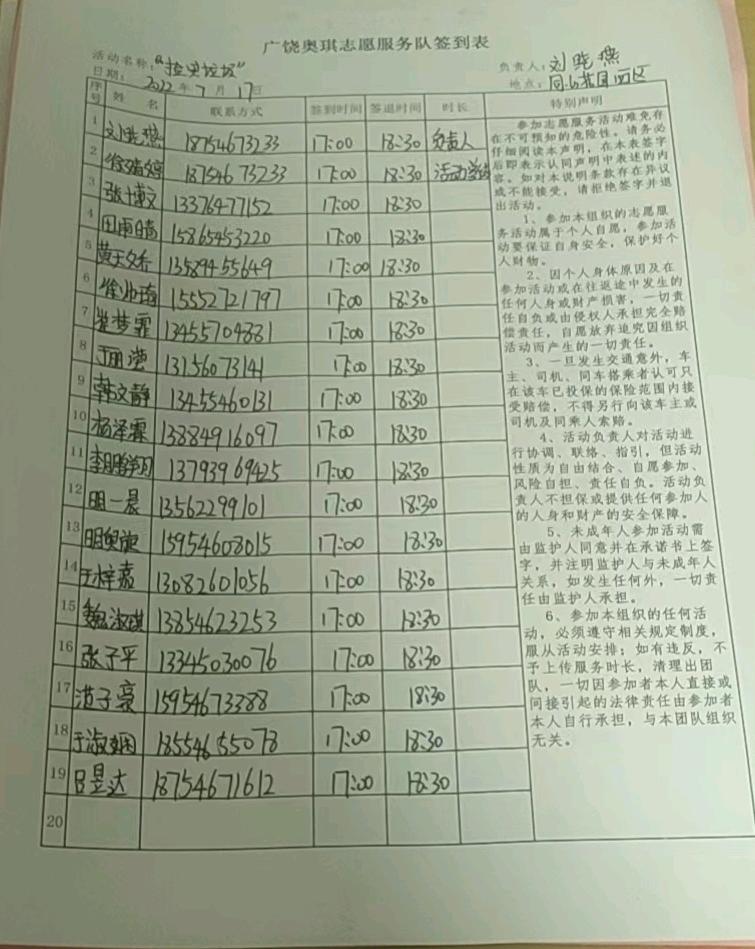 广饶奥琪志愿服务队签到表
活动名称：“捡奥垃圾”
负责人：刘晓燕
日期：2022年7月17日
地点：同山花园西区
序号 姓 名 联系方式 签到时间 签退时间 时长 特别声明
1 刘晓燕 18754673233 17:00 18:30 负责人
2 18754673233 17:00 18:30
3 张博文 13376477152 17:00 18:30
4 田雨晴 15865453220 17:00 18:30
5 黄天乔 13589455649 17:00 18:30
6 15552721797 17:00 18:30
7 崔梦霏 13455704881 17:00 18:30
8 13156073141 17:00 18:30
9 韩文静 13455460131 17:00 18:30
10 杨泽霖 13884916097 17:00 18:30
11 13793969425 17:00 18:30
12 明一晨 13562299101 17:00 18:30
13 15954608015 17:00 18:30
14 王梓嘉 13082601056 17:00 18:30
15 魏淑琪 13854623253 17:00 18:30
16 张子平 13345030076 17:00 18:30
17 范子豪 15954673388 17:00 18:30
18 于淑娴 18554655078 17:00 18:30
19 吕昱达 18754671612 17:00 18:30
20
参加志愿服务活动难免存
在不可预知的危险性。请务必
仔细阅读本声明，在本表签字
后即表示认同声明中表述的内
容。如对本说明条款存在异议
或不能接受，请拒绝签字并退
出活动。
1、参加本组织的志愿服
务活动属于个人自愿，参加活
动要保证自身安全，保护好个
人财物。
2、因个人身体原因及在
参加活动或在往返途中发生的
任何人身或财产损害，一切责
任自负或由侵权人承担完全赔
偿责任，自愿放弃追究因组织
活动而产生的一切责任。
3、一旦发生交通意外，车
主、司机、同车搭乘者认可只
在该车已投保的保险范围内接
受赔偿，不得另行向该车主或
司机及同乘人索赔。
4、活动负责人对活动进
行协调、联络、指引，但活动
性质为自由结合、自愿参加、
风险自担、责任自负。活动负
责人不担保或提供任何参加人
的人身和财产的安全保障。
5、未成年人参加活动需
由监护人同意并在承诺书上签
字，并注明监护人与未成年人
关系，如发生任何外，一切责
任由监护人承担。
6、参加本组织的任何活
动，必须遵守相关规定制度，
服从活动安排；如有违反，不
予上传服务时长，清理出团
队，一切因参加者本人直接或
间接引起的法律责任由参加者
本人自行承担，与本团队组织
无关。